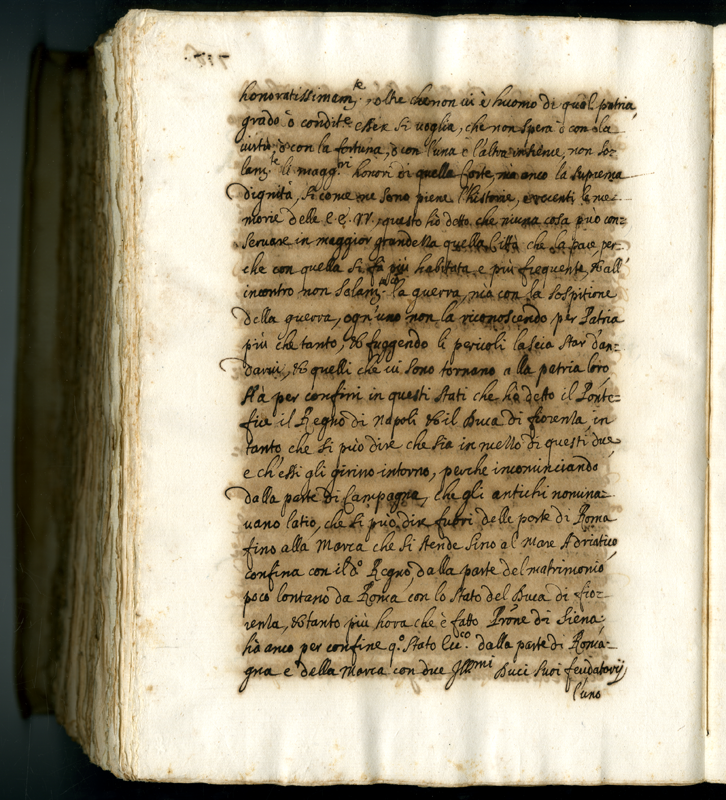 honoratissimam.te, oltre che non vi è huomo di qual patria,
grado ò condit.e che si voglia, che non spera ò con la
virtù, ò con la fortuna, ò con l'una è l'altra insieme, non so-
lam.te li magg.ri honori di quella Corte, ma anco la suprema
dignità, si come ne sono piene l'historie, e recenti le me-
morie delle questo hò detto che niuna cosa può con-
servare in maggior grandezza quella Città che la pace, per-
che con quella si fà più habitata, e più frequente, et all'
incontro non solam.te la guerra, mà con la sospitione
della guerra, ogn'uno non la riconoscendo per Patria
più che tanto, et fuggendo li pericoli lascia star d'an-
darvi, et quelli che vi sono tornano alla patria loro
Hà per confini in questi stati che hò detto il Ponte-
fice il Regno di Napoli et il Duca di fiorenza, in
tanto che si può dire che sia in mezzo di questi due
e ch'essi gli girino intorno, perche incominciando
dalla parte di Campagna, che gli antichi nomina-
vano latio, che si può dir fuori delle porte di Roma
fino alla Marca che si stende sino al mare Adriatico
confina con il d.o Regno, dalla parte del matrimonio
poco lontano da Roma con lo stato del Duca di fio-
renza, et tanto più hora che è fatto Prône di Siena,
hà anco per confine q.o stato Ecc.co dalla parte di Roma-
gna e della Marca con due Ill.mi Duci suoi feudatorij
l'uno